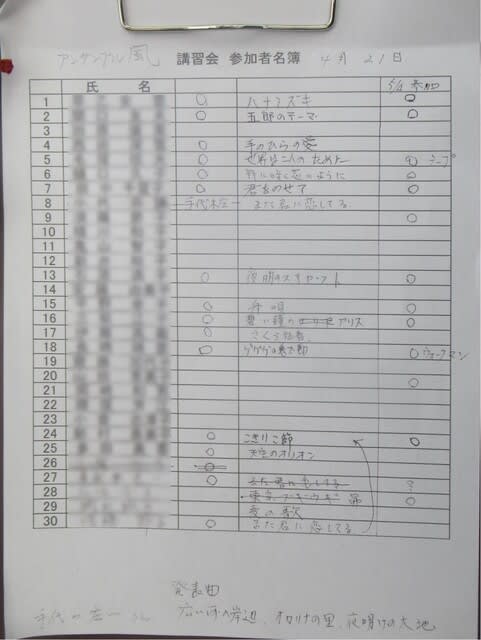 アンサンブル風 講習会 参加者名簿 4月21日
氏 名 5/12 参加
1 ○ ハナミズキ ○
2 ○ 五郎のテーマ ○
3
4 ○ 手のひらの愛
5 ○ 世界は二人のために ○ テープ
6 ○ 野に咲く花のように ○
7 ○ 君をのせて ○
8 手代木 また君に恋してる
9 ○
10
11
12
13 ○ 夜明のスキャット ○
14
15 ○ 舟唄 ○
16 ○ 碧い瞳の アリス ○
17 ○ さくら
18 ○ ゲゲゲの鬼太郎 ○ ウォークマン
19
20 ○
21
22
23
24 ○ こきりこ節 ○
25 ○ 天空のオリオン
26 ○
27 ○ また君に恋してる ?
28 東京ブギウギ
29 愛の讃歌 ○
30 ○ また君に恋してる
発表曲
広い河の岸辺、オカリナの里、夜明けの大地